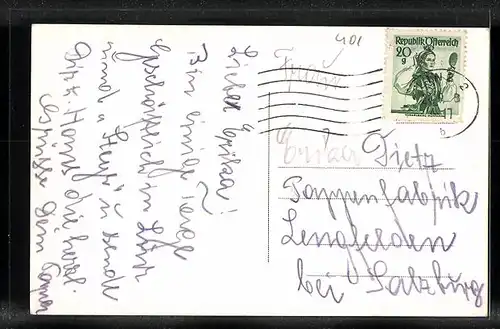 401
Republik Österreich
20
g
Liebe Erika!
Bin einige Tage
geschäftlich in Linz
und u sende
Dir u. Hans die herzl.
Grüsse Dein Papa
Frau
Erika Dietz
Pappenfabrik
Lengfelden
bei Salzburg